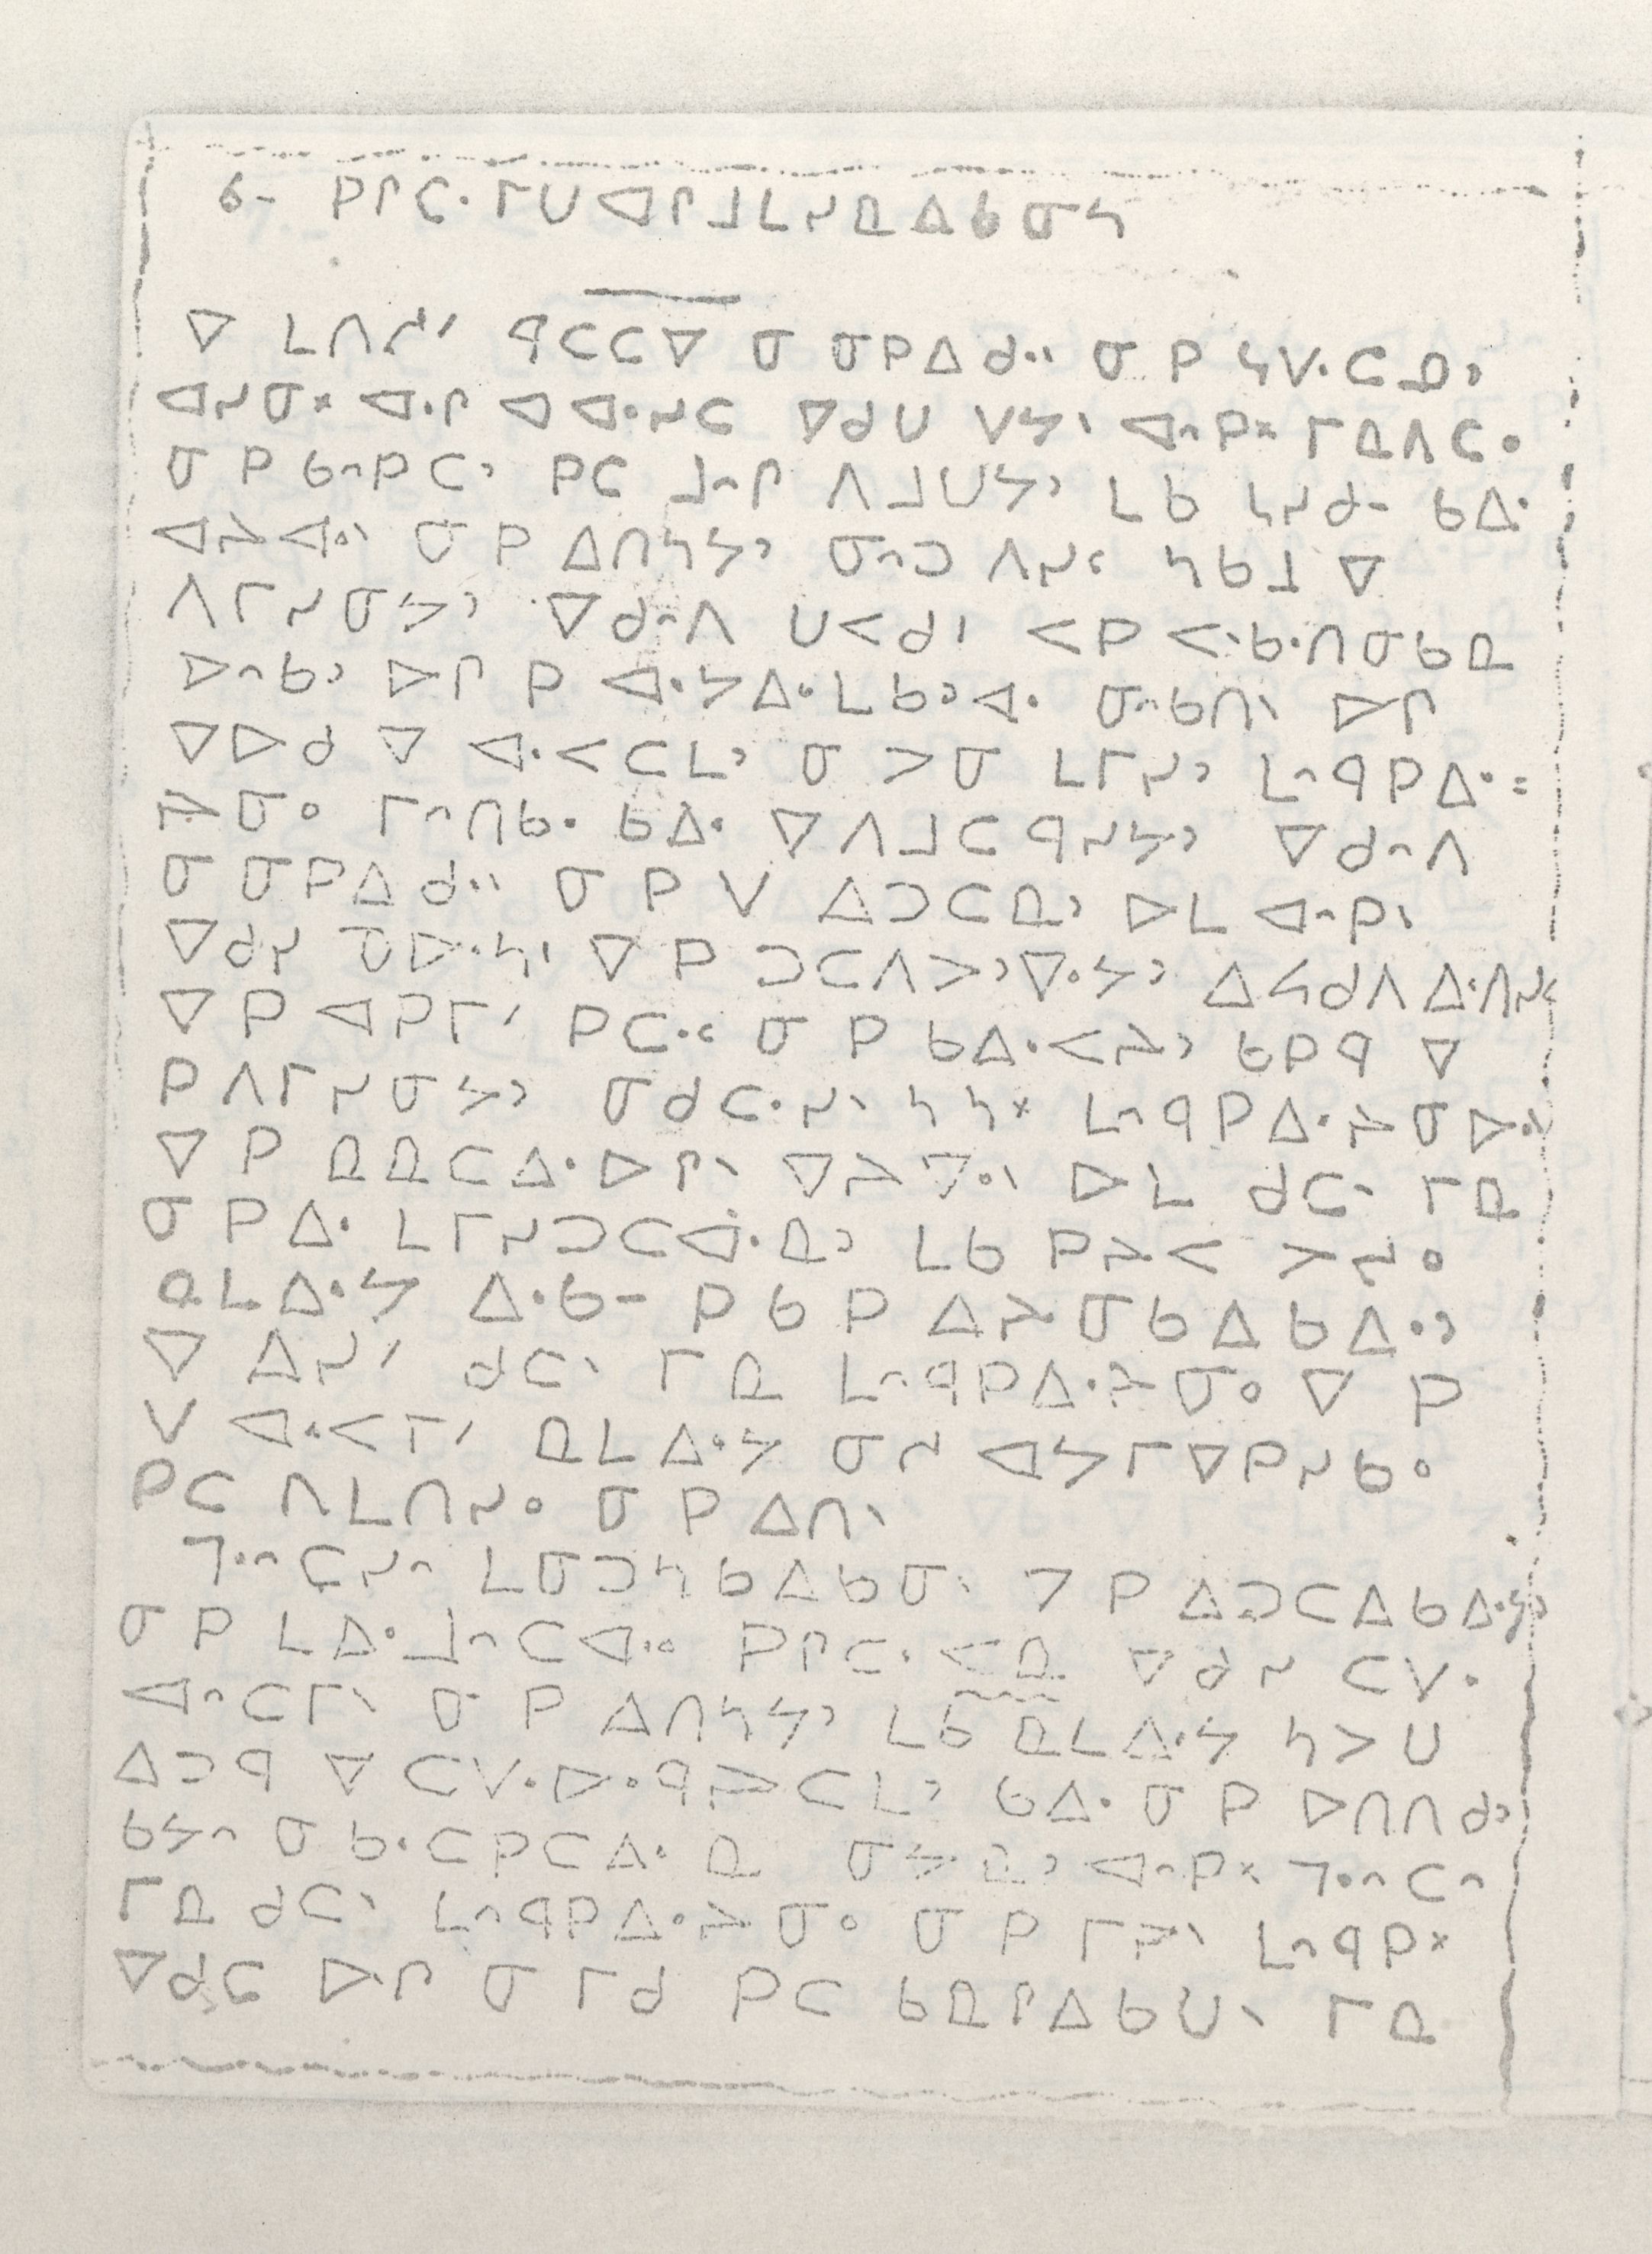 6- ᑭᒋᑕᐧᒥᑌᐊᒋᒧᒪᓯᓇᐃᑲᓂᓴ
ᐁ ᒪᑎᓯᐟ ᑫᑕᑕᐁ ᓂ ᓂᑭᐃᑯᐠᐠ ᓂ ᑭ ᓴᐯᐧᑕᓄᐣ
ᐊᓯᓂᕽ ᐊᐧᒋ ᐊ ᐊᐧᓯᑕ ᐁᑯᑌ ᐯᔭᐠ ᐊᐢᑭᕽ ᒥᓇᐱᑕᐤ
ᓂ ᑭ ᑲᐢᑭᑕᐣ ᑭᑕ ᒧᐢᒋ ᐱᒧᑌᔭᐣ ᒪᑲ ᓴᓯᑯᐨ ᑲᐃᐧ
ᐊᔨᐊᐧᐠ ᓂ ᑭ ᐃᑎᓴᔭᐣ ᓂᐢᑐ ᐱᓯᒼ ᓴᑲᒧ ᐁ
ᐱᒥᓯᓂᔭᐣ ᐁᑯᐢᐱ ᑌᐸᑯᐦ ᐸᑭ ᐸᐧᑲᐧᑎᓂᑲᓇ
ᐅᐢᑲᐣ ᐅᒋ ᑭ ᐊᐧᔭᐃᐧᒪᑲᐣᐊᐧ ᓂᐢᑲᑎᐠ ᐅᒋ
ᐁᐅᑯ ᐁ ᐊᐧᐸᑕᒪᐣ ᓂ ᐳᓂ ᒪᒥᓯᐣ ᒪᐢᑫᑭᐃᐧ᐀
ᔨᓂᐤ ᒥᐢᑎᑲᐧ ᑲᐃᐧ ᐁᐱᒧᑕᑫᓯᔭᐣ ᐁᑯᐢᐱ
ᓂ ᓂᑭᐃᑯᐠᐠ ᓂ ᑭ ᐯ ᐃᑐᑕᓇᐣ ᐅᒪ ᐊᐢᑭᐠ
ᐁᑯᓯ ᓀᐅᐧᓴᐦ ᐁ ᑭ ᑐᑕᐱᔪᐣᐁᐧᔭᐣ ᐃᔕᑯᐱ ᐃᐧᐱᓯᒼ
ᐁ ᑭ ᐊᑭᒥᐟ ᑭᑕᐧᒼ ᓂ ᑭ ᑲᐃᐧᐸᔨᐣ ᑲᑭᑫ ᐁ
ᑭ ᐱᒥᓯᓂᔭᐣ ᓂᑯᑕᐧᓯᐠ ᓴᓴᕽ ᒪᐢᑫᑭᐃᐧᔨᓂᐅᐧᐠ
ᐁ ᑭ ᓇᓇᑕᐃᐧᐅᒋᐠ ᐁᔨᐁᐧᐠ ᐅᒪ ᑯᑕᐠ ᒥᓇ
ᓂ ᑭ ᐃᐧ ᒪᒥᓯᑐᑕᐊᐧᓇᐣ ᒪᑲ ᑭᔨᐸ ᐳᓯᐤ
ᓇᒪᐃᐧᔭ ᐃᐧᑲᐨ ᑭ ᑲ ᑭ ᐃᔨᓂᑲᐃᑲᐃᐧᐣ
ᐁ ᐃᓯᐟ ᑯᑕᐠ ᒥᓇ ᒪᐢᑫᑭᐃᐧᔨᓂᐤ ᐁ ᑭ
ᐯ ᐊᐧᐸᒥᐟ ᓇᒪᐃᐧᔭ ᓂᓯ ᐊᔭᒥᐁᑭᓯᑲᐤ
ᑭᑕ ᑎᒪᑎᓯᐤ ᓂ ᑭ ᐃᑎᐠ
ᒣᐧᐢᑕᓯᐢ ᒪᓂᑐᓴᑲᐃᑲᓂᐠ ᒣ ᑭ ᐃᑐᑕᐃᑲᐃᐧᔭᐣ
ᓂ ᑭ ᒪᐃᐧᒧᐢᑕᐊᐧᐤ ᑭᒋᑕᐧ ᐸᓇ ᐁᑯᓯ ᑕᐯᐧ
ᐊᐧᐢᑕᒥᐠ ᓂ ᑭ ᐃᑎᓴᔭᐣ ᒪᑲ ᓇᒪᐃᐧᔭ ᓴᐳᑌ
ᐃᑐᑫ ᐁ ᑕᐯᐧᐅᐧᑫᔨᑕᒪᐣ ᑲᐃᐧ ᓂ ᑭ ᐅᑎᑎᑯᐣ
ᑲᔭᐢ ᓂ ᑲᐧᑕᑭᑕᐃᐧ ᓇ ᓂᔭᓇᐣ ᐊᐢᑭᕽ ᒣᐧᐢᑕᐢ
ᒥᓇ ᑯᑕᐠ ᒪᐢᑫᑭᐃᐧᔨᓂᐤ ᓂ ᑭ ᒥᔨᐠ ᒪᐢᑫᑭᕽ
ᐁᑯᑕ ᐅᒋ ᓂ ᒥᑯ ᑭᑕ ᑲᓇᒋᐃᑲᑌᐠ ᒥᓇ